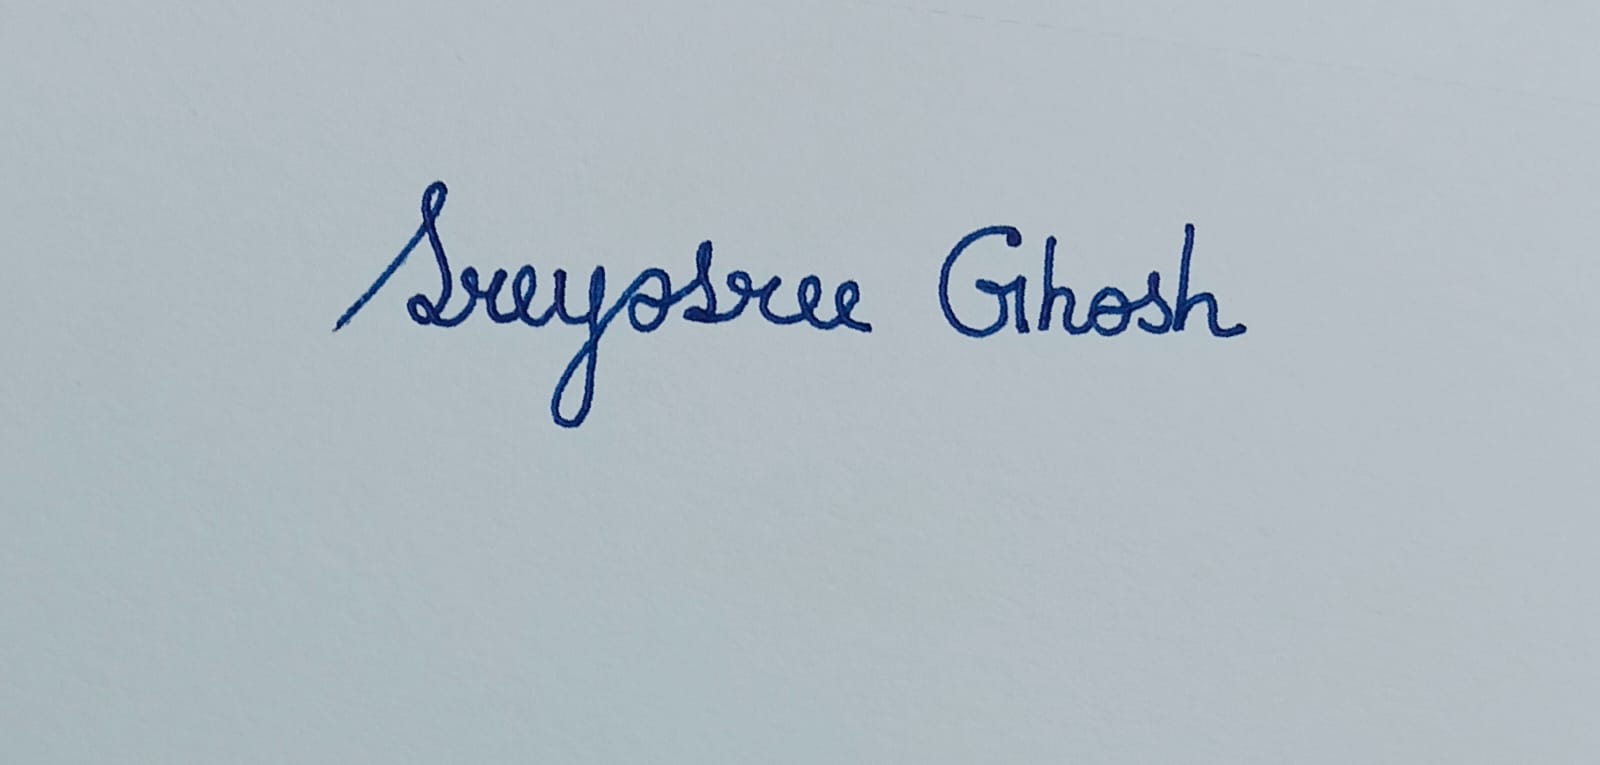 Sreyosree Ghosh